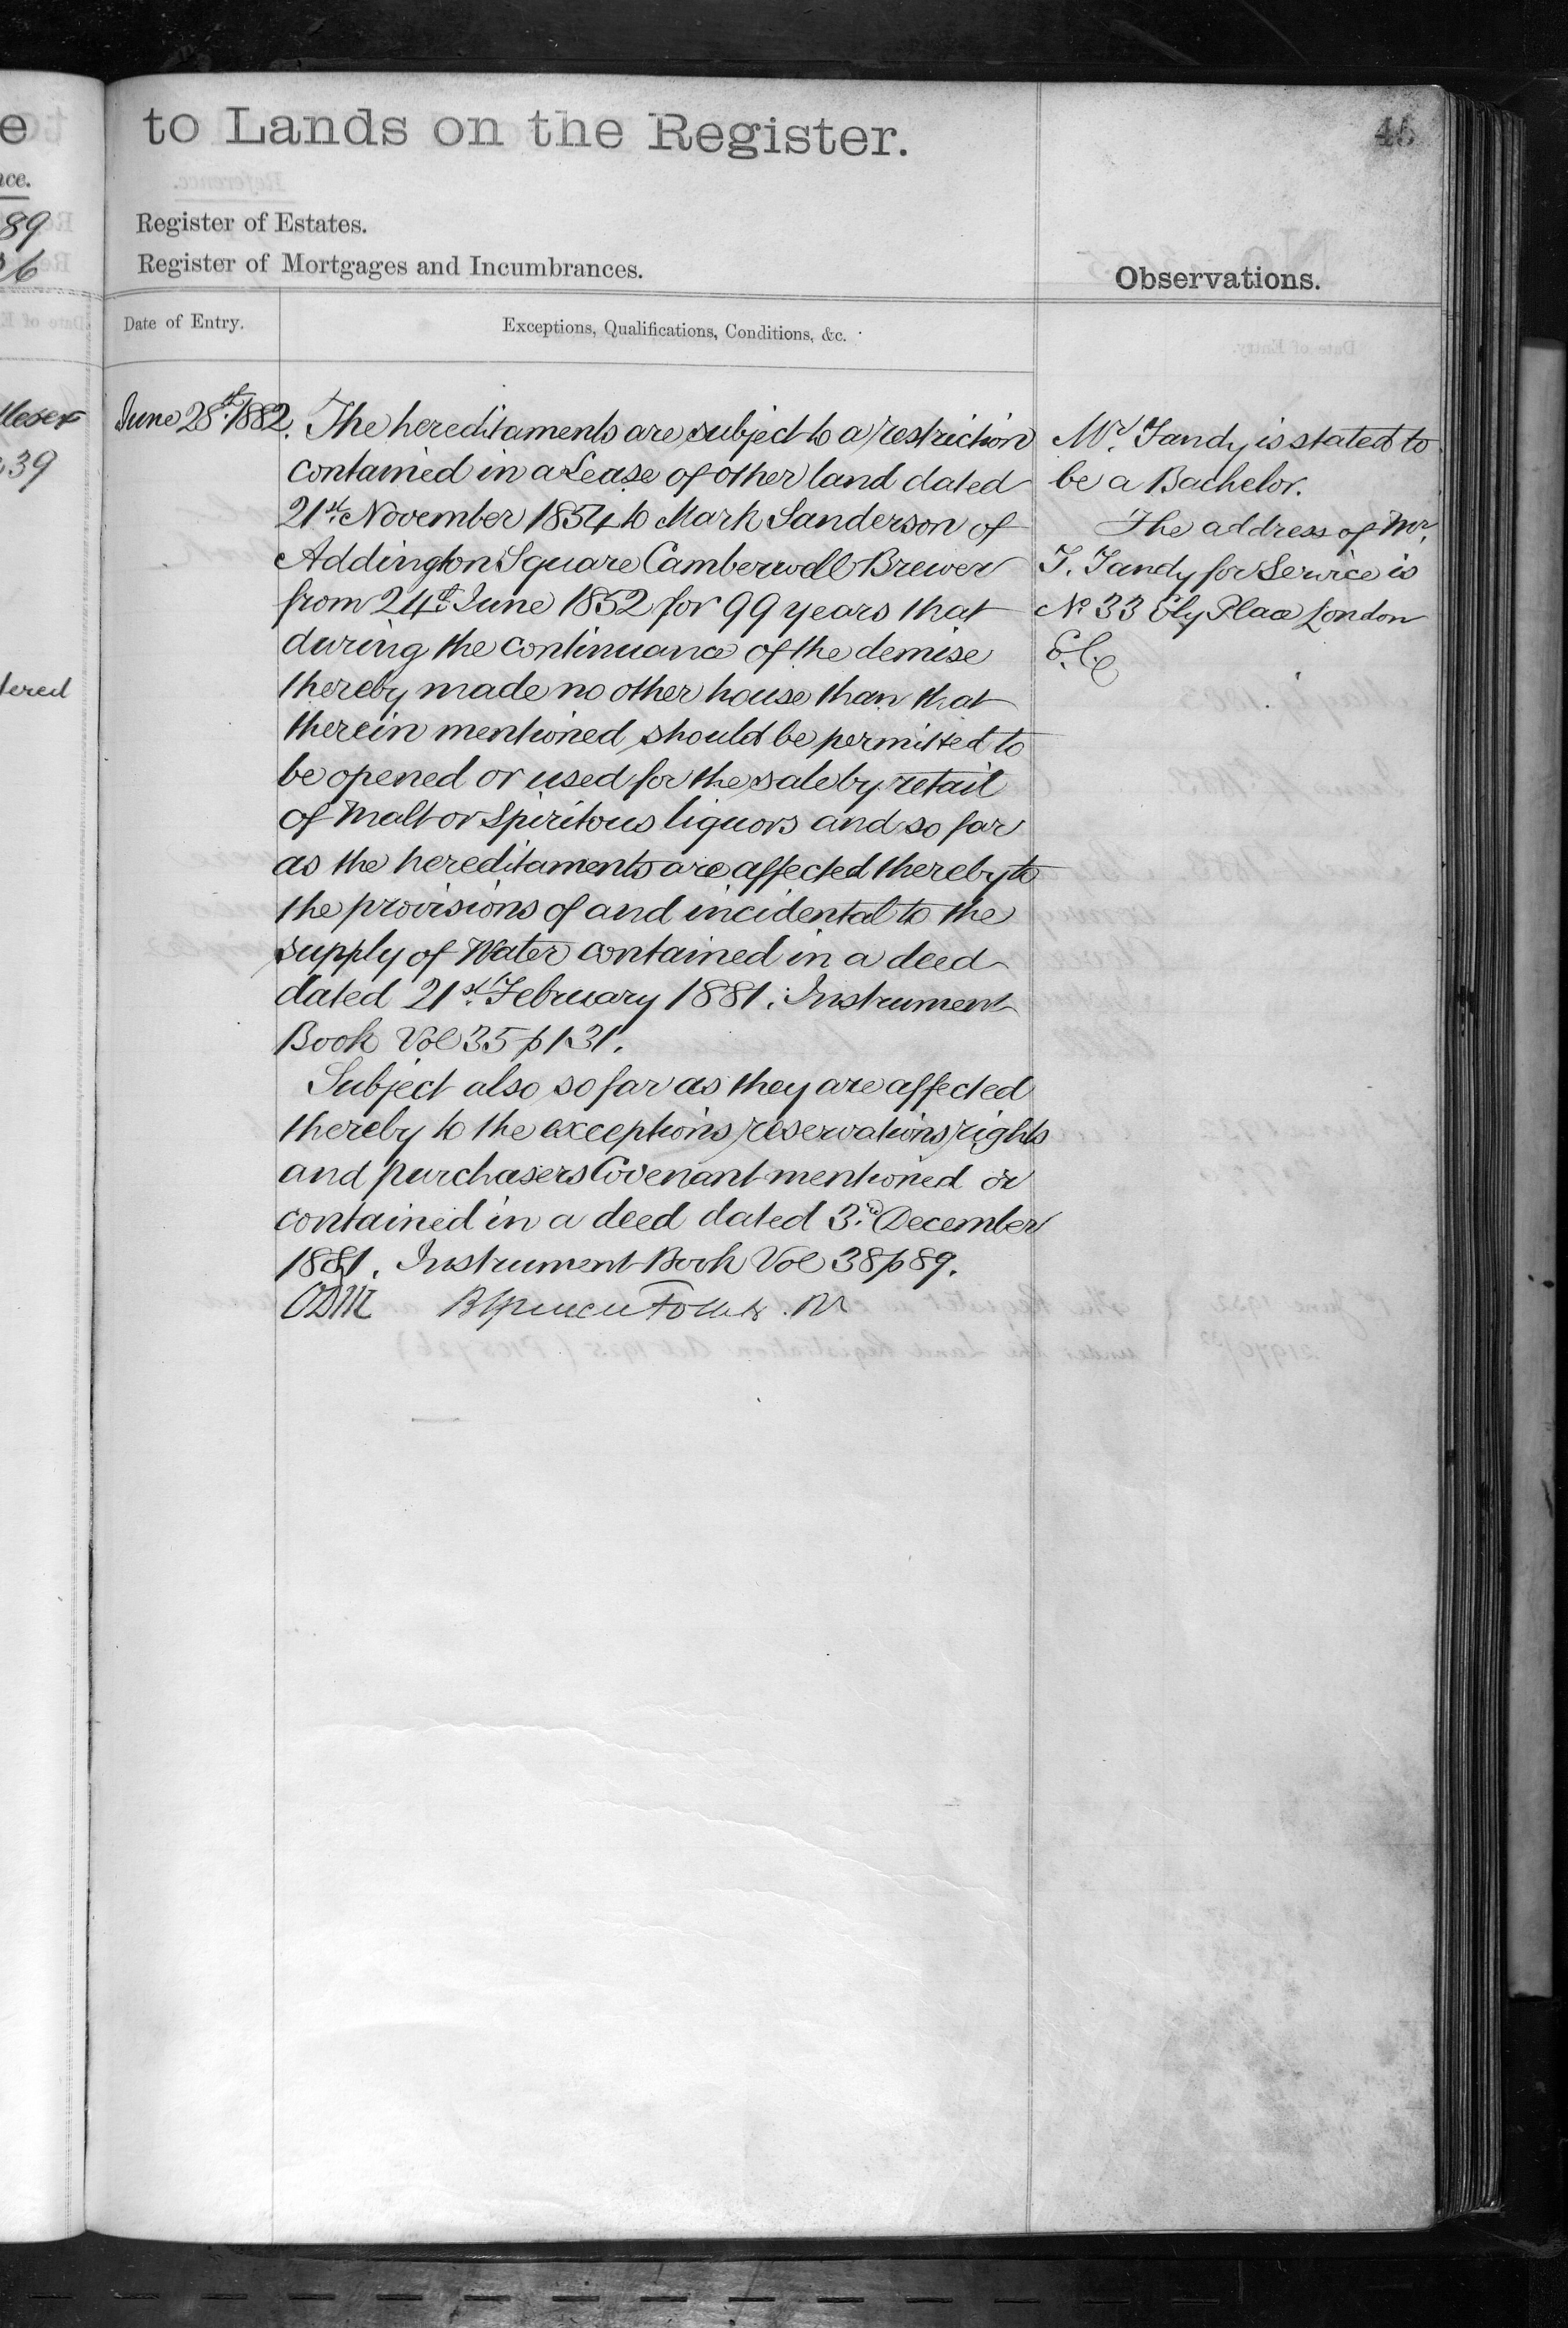 e
to Lands on the Register.
46
nce.
89
Register of Estates.
26
Register of Mortgages and Incumbrances.
Observations.
Date of Entry.
Exceptions, Qualifications, Conditions, &c.
June 28th 1882.
The hereditaments are subject to a restriction
contained in a Lease of other land dated
21st November 1854 to Mark Sanderson of
Addington Square Camberwell Brewer
from 24th June 1852 for 99 years that
during the continuance of the demise
thereby made no other house than that
therein mentioned should be permitted to
be opened or used for the sale by retail
of Malt or Spiritous liquors and so far
as the hereditaments are affected thereby to
the provisions of and incidental to the
supply of Water contained in a deed
dated 21st February 1881. Instrument
Book Vol 35 p 131.
Subject also so far as they are affected
thereby to the exceptions reservations rights
and purchasers Covenant mentioned or
contained in a deed dated 3rd December
1881. Instrument Book Vol 38 p 89.
Mr. Tandy is stated to
be a Bachelor.
The address of Mr.
T. Tandy for Service is
No 33 Ely Place London
E.C.
39
tered